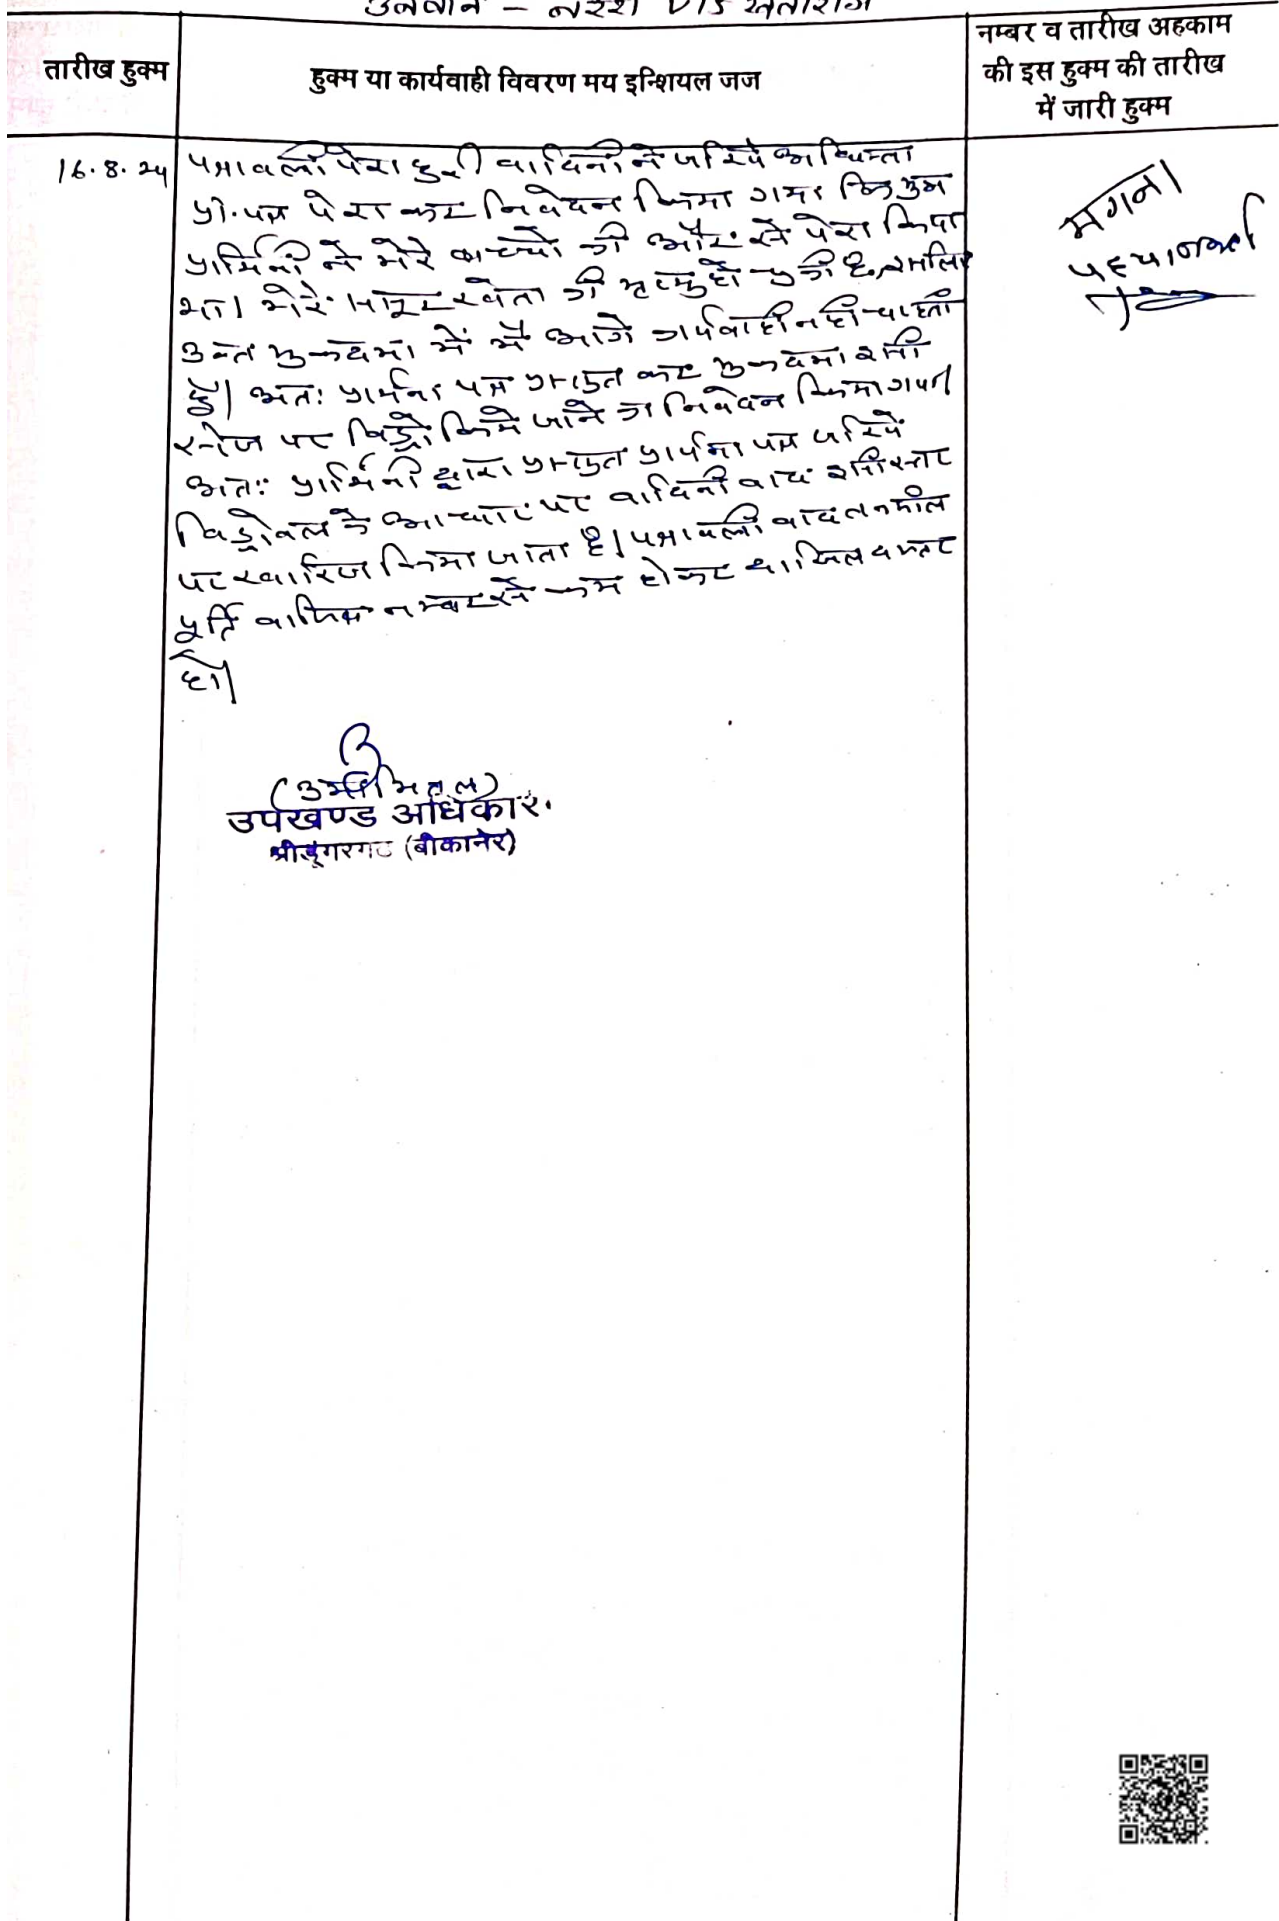 उनवान - नरेश V/S खेताराम
तारीख हुक्म
हुक्म या कार्यवाही विवरण मय इन्शियल जज
नम्बर व तारीख अहकाम
की इस हुक्म की तारीख
में जारी हुक्म
16.8.24
पत्रावली पेश हुई। वादिनी ने जरिये अधिवक्ता
प्रा.पत्र पेश कर निवेदन किया गया कि मुझ
प्रार्थिनी ने मेरे बच्चों की और से पेश किया
था। मेरे ससुर खेता की मृत्यु हो चुकी है, इसलिए
उक्त मुकदमा में मैं आगे कार्यवाही नहीं चाहती
हूँ। अतः प्रार्थना पत्र प्रस्तुत कर मुकदमा इसी
स्टेज पर विड्रो किये जाने का निवेदन किया गया।
अतः प्रार्थिनी द्वारा प्रस्तुत प्रार्थना पत्र जरिये
विड्रोवल के आधार पर वादिनी वाद इसी स्तर
पर खारिज किया जाता है। पत्रावली बाद तकमील
पूर्ति वास्ति नम्बर से कम होकर दाखिल दफ्तर
हो।
(उमा मित्तल)
उपखण्ड अधिकारी
श्रीडूंगरगढ (बीकानेर)
मगना
पहचानकर्ता